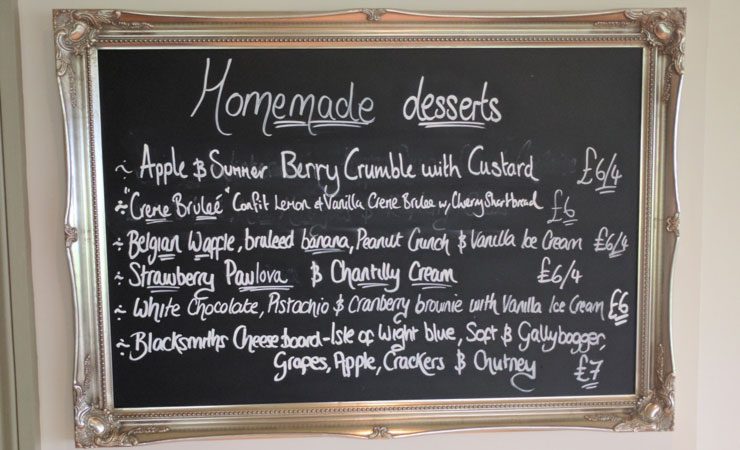 Homemade desserts
~ Apple & Summer Berry Crumble with Custard £6/4
~ "Creme Bruleé" Confit Lemon & Vanilla Creme Brulee w, Cherry Shortbread £6
~ Belgian Waffle, bruleed banana, Peanut Crunch & Vanilla Ice Cream £6/4
~ Strawberry Pavlova & Chantilly Cream £6/4
~ White Chocolate, Pistachio & Cranberry brownie with Vanilla Ice Cream £6
~ Blacksmiths Cheeseboard - Isle of Wight blue, Soft & Gallybagger,
Grapes, Apple, Crackers & Chutney £7